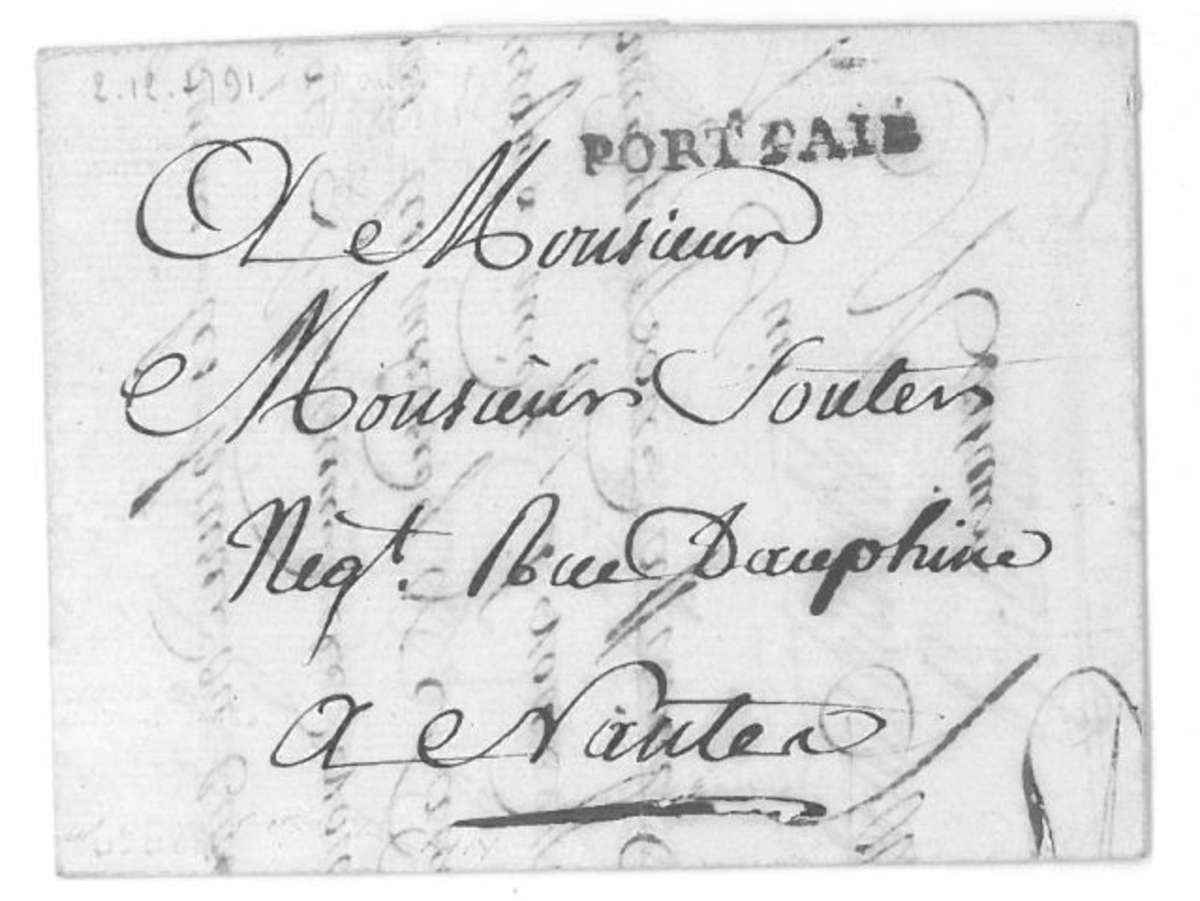 2.12.1791
PORT PAIÉ
A Monsieur
Monsieur Souter
Negt. Rue Dauphine
a Nantes